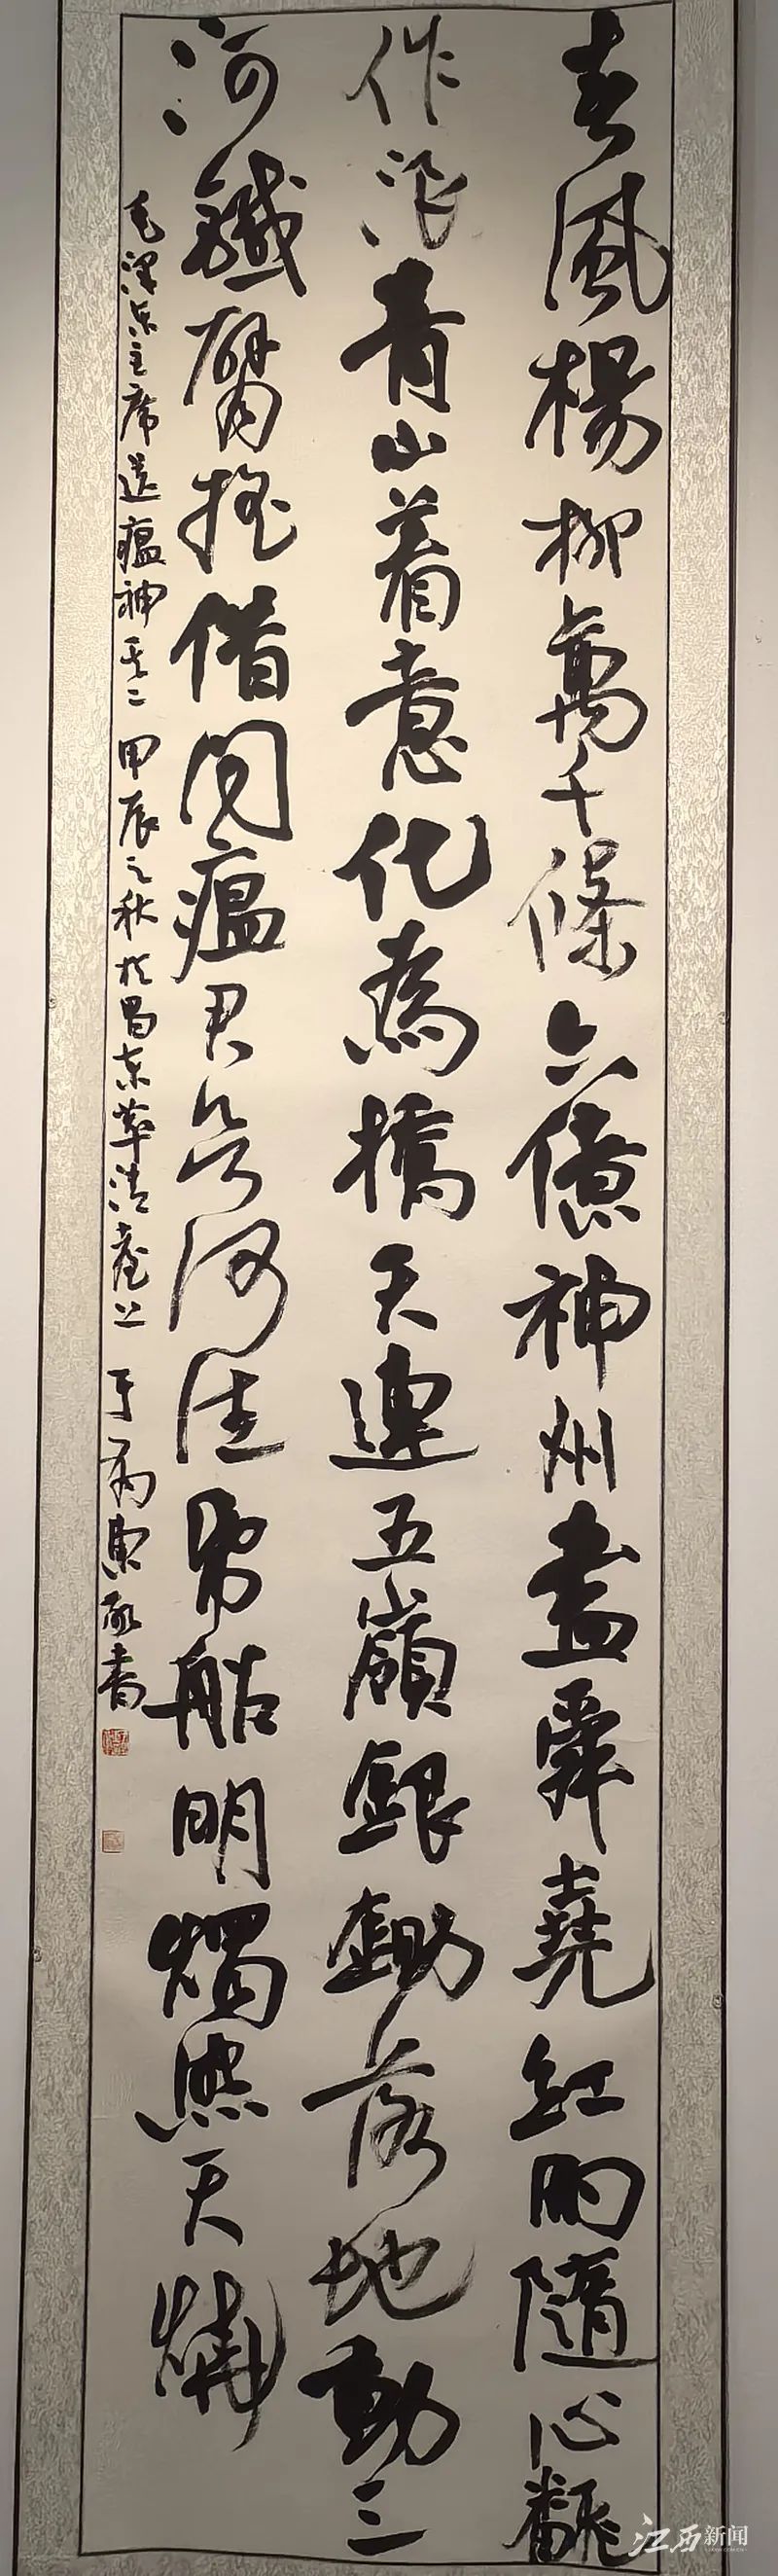 春風楊柳萬千條六億神州盡舜堯紅雨隨心飜
作浪青山着意化為橋天連五嶺銀鋤落地動三
河鐵臂搖借問瘟君欲何往帋船明燭照天燒
毛澤東主席送瘟神其二 甲辰之秋於昌東 書
江西新闻